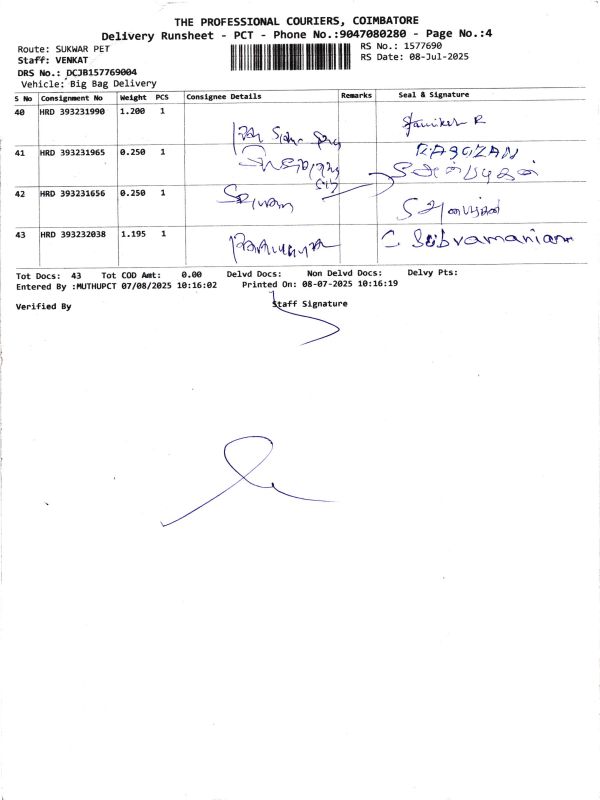 THE PROFESSIONAL COURIERS, COIMBATORE
Delivery Runsheet - PCT - Phone No.:9047080280 - Page No.:4
Route: SUKWAR PET
RS No.: 1577690
Staff: VENKAT
RS Date: 08-Jul-2025
DRS No.: DCJB157769004
Vehicle: Big Bag Delivery
S No Consignment No Weight PCS Consignee Details Remarks Seal & Signature
40 HRD 393231990 1.200 1
41 HRD 393231965 0.250 1
42 HRD 393231656 0.250 1
43 HRD 393232038 1.195 1 C. Subramaniam
Tot Docs: 43 Tot COD Amt: 0.00 Delvd Docs: Non Delvd Docs: Delvy Pts:
Entered By :MUTHUPCT 07/08/2025 10:16:02 Printed On: 08-07-2025 10:16:19
Verified By Staff Signature